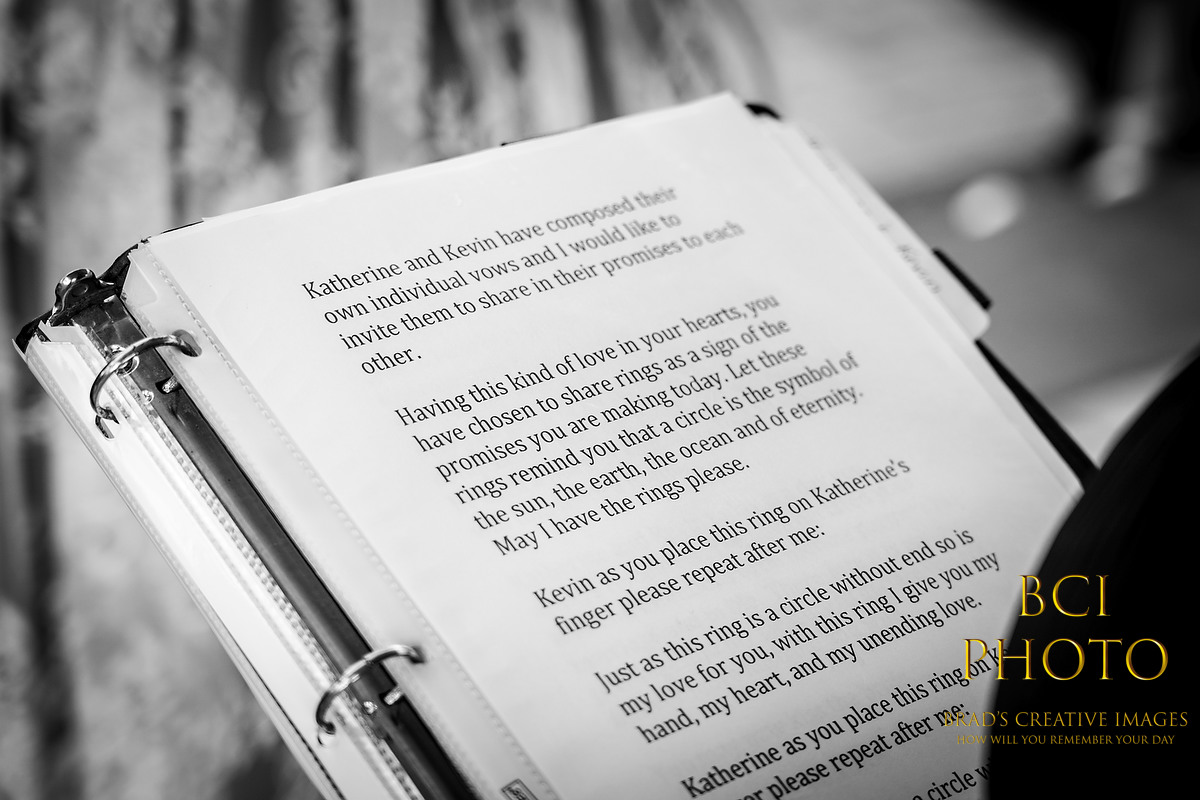 Katherine and Kevin have composed their
own individual vows and I would like to
invite them to share in their promises to each
other.
Having this kind of love in your hearts, you
have chosen to share rings as a sign of the
promises you are making today. Let these
rings remind you that a circle is the symbol of
the sun, the earth, the ocean and of eternity.
May I have the rings please.
Kevin as you place this ring on Katherine's
finger please repeat after me:
Just as this ring is a circle without end so is
my love for you, with this ring I give you my
hand, my heart, and my unending love.
Katherine as you place this ring on
please repeat after me:
circle
BCI
PHOTO
BRAD'S CREATIVE IMAGES
HOW WILL YOU REMEMBER YOUR DAY